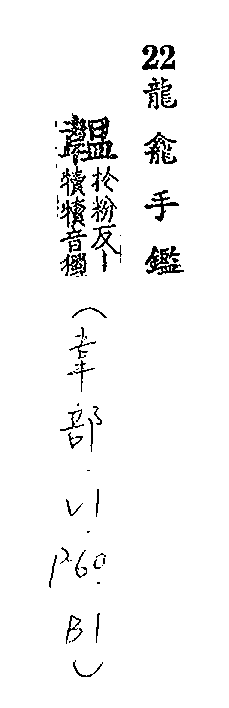 22 龍龕手鑑
韞 於粉反丨
犢犢音獨
(韋部.V1.P60.B1)